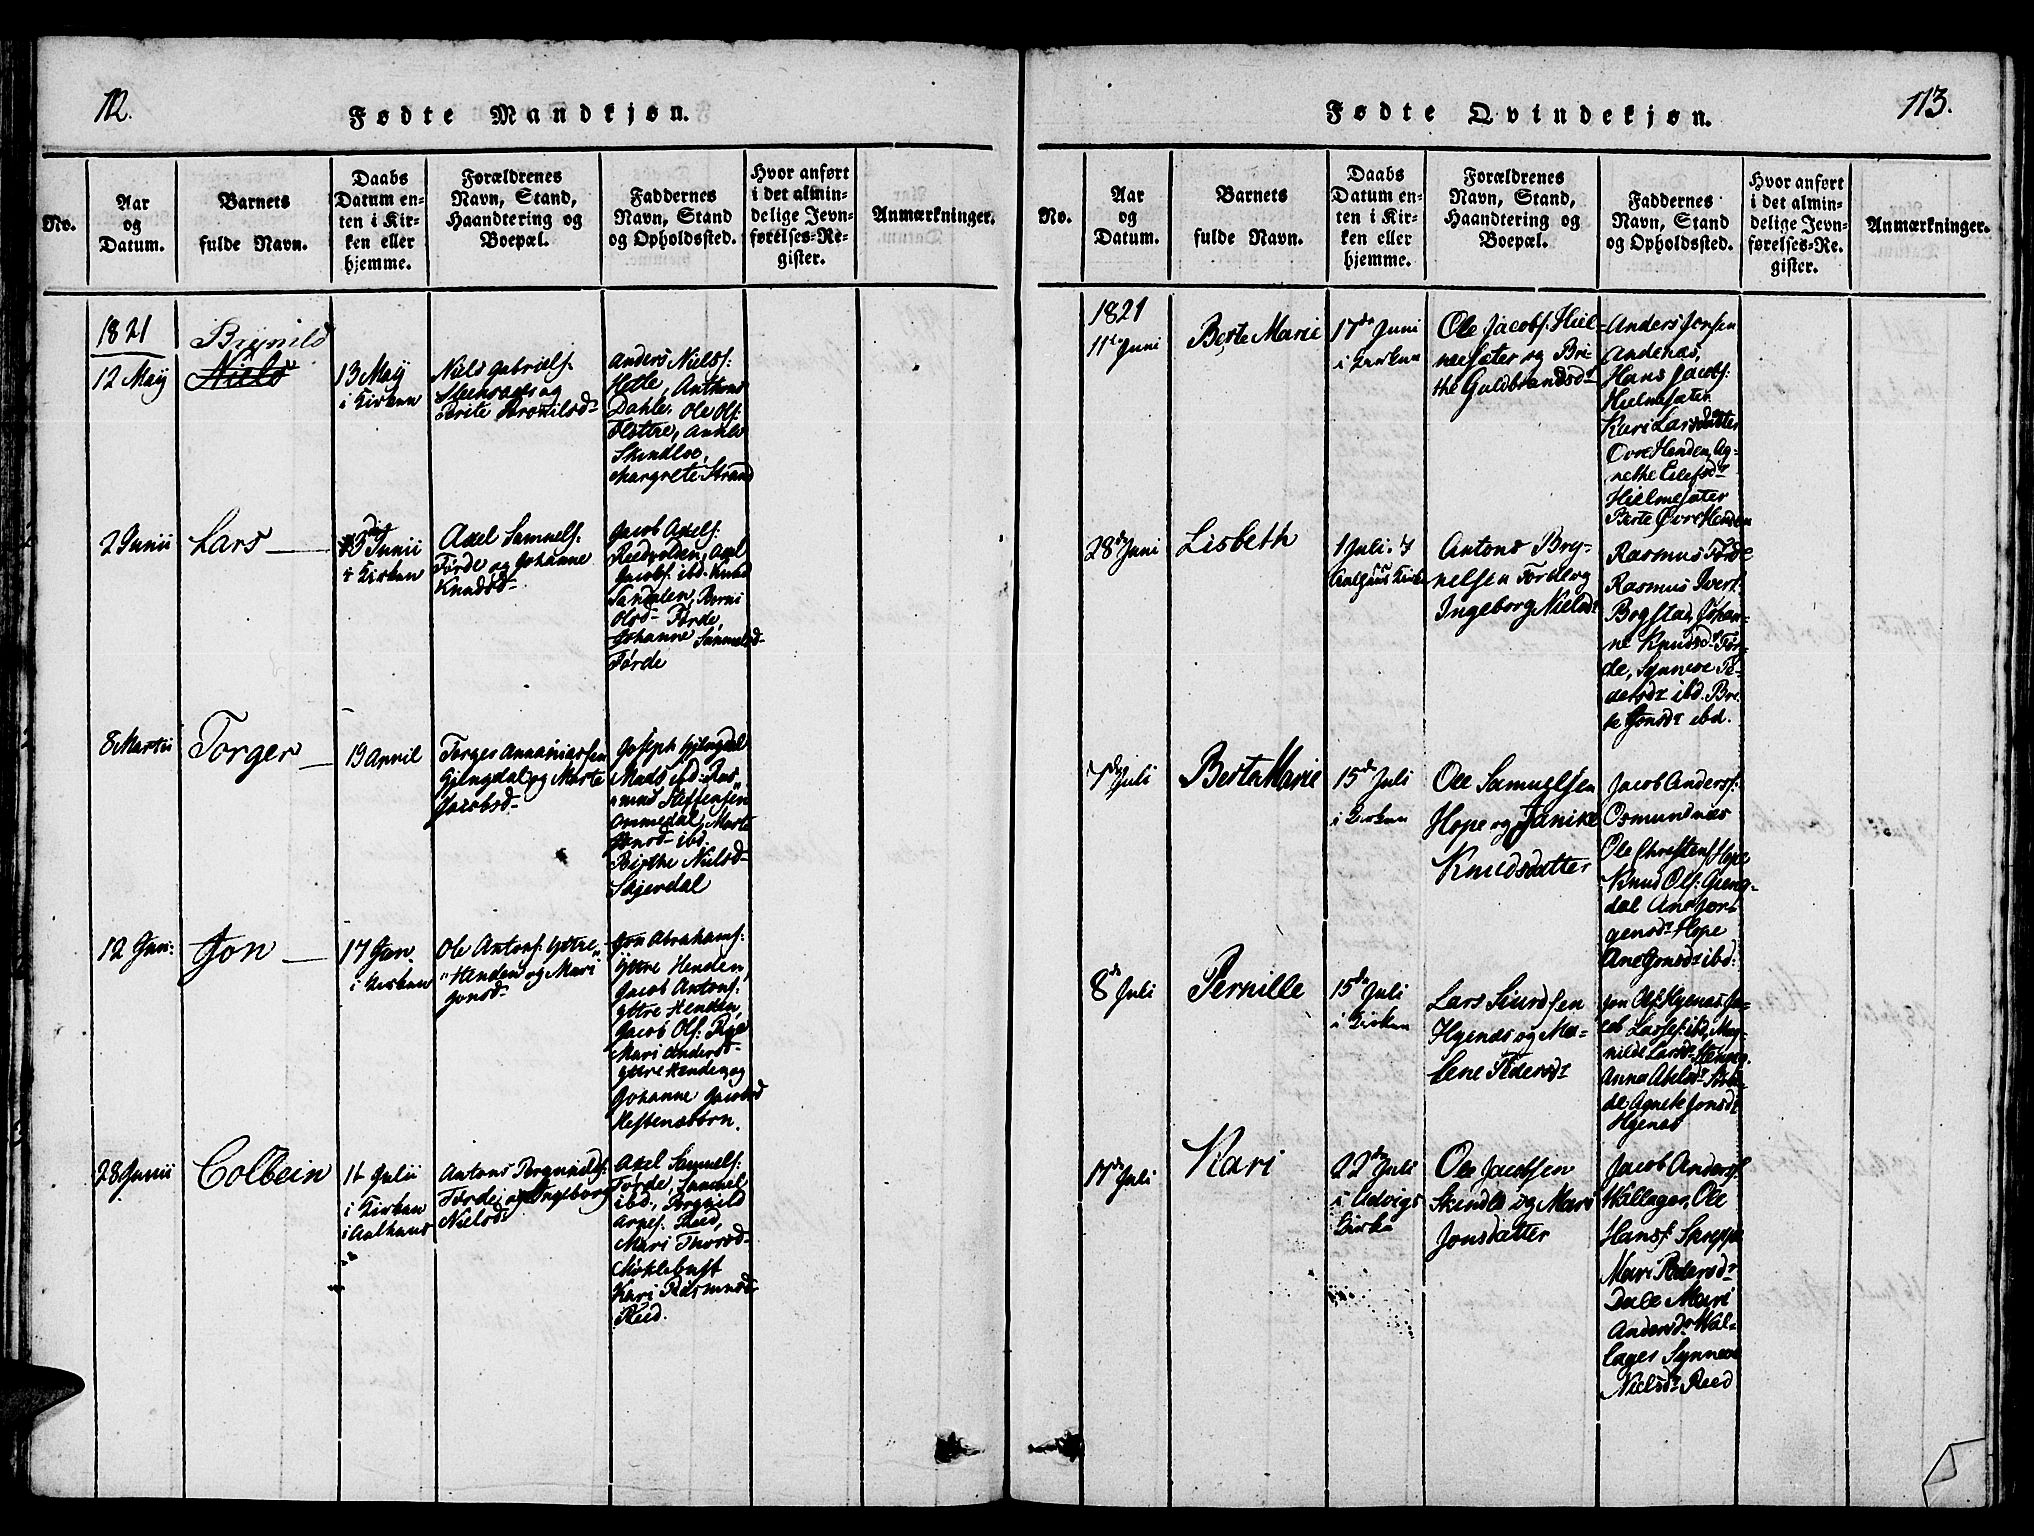 112.
Fødte Mandkjøn.
No.
Aar
og
Datum.
Barnets
fulde Navn.
Daabs
Datum en-
ten i Kir-
ken eller
hjemme.
Forældrenes
Navn, Stand,
Haandtering og
Boepæl.
Faddernes
Navn, Stand
og Opholdssted.
Hvor anført
i det almin-
delige Jevn-
førelses-Re-
gister.
Anmærkninger.
1821
12 May
Brynild
Niels
13 May
i Kirken
Niels Gabriels:
og
Brite
Anders Niels:
Hetle, Anthons
Dahle, Ole Ols:
Skindloe,
Margrete Strand
2 Junii
Lars
Junii
i Kirken
Axel Samuels:
Førde og Johanne
Knudsd
Jacob Axels:
Axel
Jacobs: ibd. Knud
Sandalen, Berni
Olsd Førde,
Johanne Samuelsd
Førde
8 Martii
Torger
19 April
Torges Annaniassen
Gjengdal og Marte
Jacobsd
Joseph Gjengdal
Mads ibd. Ras-
mus Steffensen
Ommedal, Marte
ibd.
Birthe Nielsd
12 Jan:
Jon
17 Jan.
i Kirken
Ole Antons: Yttre-
Henden og Mari
Jonsd
Jon Abrahams:
Yttre Henden,
Jacob Antons:
Yttre Henden,
Jacob Ols: Rye
Mari Andersd
Yttre Henden, og
Johanne Jacobsd
Hestenesørn.
28 Junii
Colbein
1 Julii
i Kirken
i Aalhuus
Antons Brynnilds:
Førde og Ingeborg
Nielsd
Axel Samuels:
Førde, Samuel
ibd, Brynild
Arnes: Reed,
Mari Thorsd
Møklebust
Kari Rasmusd
Reed.
113.
Fødte Qvindekjøn.
No.
Aar
og
Datum.
Barnets
fulde Navn.
Daabs
Datum en-
ten i Kir-
ken eller
hjemme.
Forældrenes
Navn, Stand,
Haandtering og
Boepæl.
Faddernes
Navn, Stand
og Opholdssted.
Hvor anført
i det almin-
delige Jevn-
førelses-Re-
gister.
Anmærkninger.
1821
11te Juni
Berte Marie
17de Juni
i Kirken
Ole Jacobs: Hiel-
mesæter og Bri-
the Guldbrandsdr
Anders Jensen
Andenæs,
Hans Jacobs:
Hielmesæter
Kari Larsdatter
Øvre Henden, Ag-
nethe Eilefsdr
Hielmesæter
Berte Øvre Henden
28de Juni
Lisbeth
1 Juli i
Aalhuus Kirke
Antons Bry-
nelsen Førde og
Ingeborg Nielsdr
Rasmus Førde
Rasmus Ivers:
Bogstad, Johan-
ne Knudsdr Før-
de, Synneve Pe-
dersdr ibd. Bri-
te Jonsdr ibd.
7de Juli
Berta Marie
15de Juli
i Kirken
Ole Samuelsen
Hope og Janike
Knudsdatter
Jacob Anders:
Osmundnæs
Ole Christens: Hope
Knud Ols: Gjeng-
dal Ane Jør-
gensdr Hope
Ane Jonsdr ibd:
8de Juli
Pernille
15de Juli
i Kirken
Lars Siurdsen
Hyenæs og Ma-
lene Pedersdr
Jon Ols: Hyenæs, Ja-
cob Lasses: ibd, Mag-
nilde Larsdr
Anna Abelsdr
de Agnete Jonsdr
Hyenæs
17de Juli
Kari
22de Juli
i Udvigs
Kirke
Ole Jacobsen
Skindlo og Mari
Jonsdatter
Jacob Anders:
Wallager, Ole
Hans: Skreppe
Mari Pedersdr
Dale Mari
Andersdr Wal-
lager Synneve
Nielsdr Reed